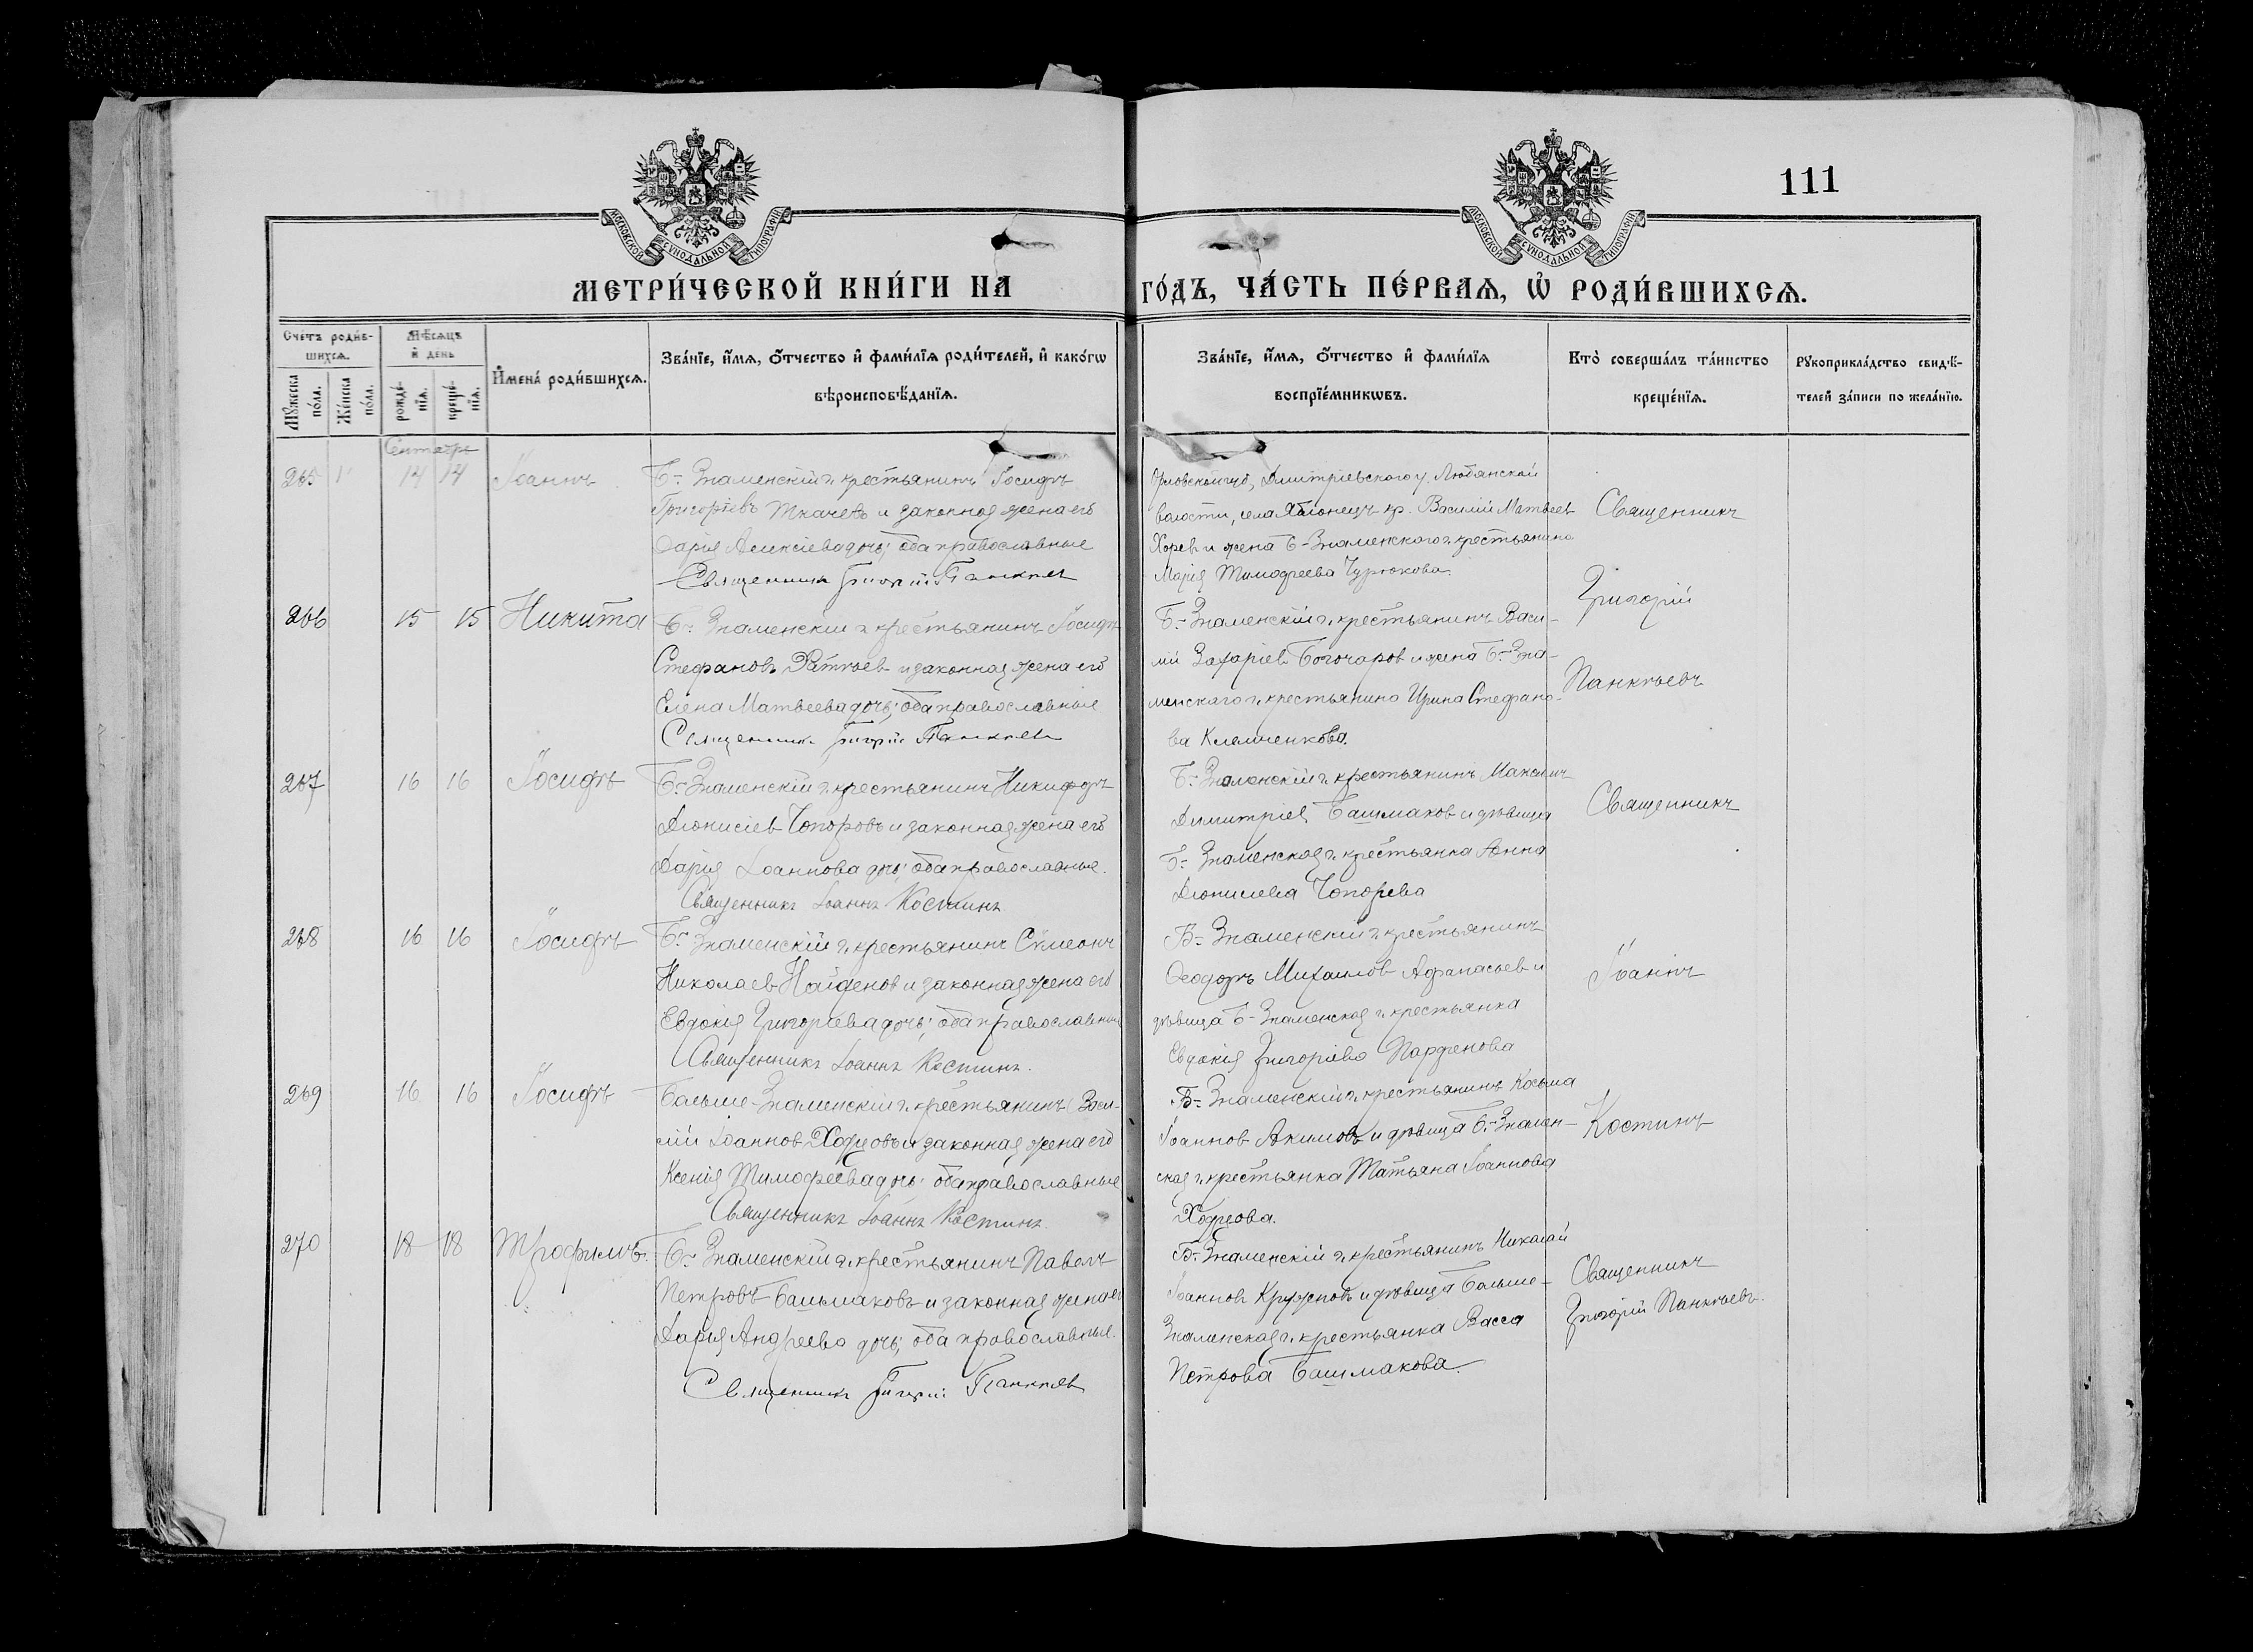 111
МОСКОВСКОЙ СУНОДАЛЬНОЙ ТИПОГРАФІИ
МОСКОВСКОЙ СУНОДАЛЬНОЙ ТИПОГРАФІИ
МЕТРИ́ЧЕСКОЙ КНИ́ГИ НА ГО́ДЪ, ЧА́СТЬ ПЕ́РВАѦ, Ѡ҆ РОДИ́ВШИХСѦ.
Счетъ роди́в-
шихсѧ.
Мꙋ́жеска по́ла.
Же́нска по́ла.
Мѣ́сѧцъ
и҆ день
рожде́нїѧ.
креще́нїѧ.
И҆мена̀ роди́вшихсѧ.
Зва́нїе, и҆́мѧ, ѻ҆́тчество и҆ фами́лїѧ роди́телей, и҆ како́гѡ
вѣроисповѣ́данїѧ.
Зва́нїе, и҆́мѧ, ѻ҆́тчество и҆ фами́лїѧ
воспрїе́мникѡвъ.
Кто̀ соверша́лъ та́инство
креще́нїѧ.
Рꙋкоприкла́дство свидѣ́-
телей за́писи по жела́нїю.
Сентябрь
265 14 14 Іоаннъ
Б-Знаменскій г. крестьянинъ Іосифъ
Григоріевъ Ткачевъ и законная жена его
Дарія Алексіева дочь; оба православные
Священникъ Григорій Панкѣев
волости, села Яблонецъ кр. Василій Матвеев
Хорев и жена Б-Знаменского г. крестьянина
Марія Тимофеева Чурюкова.
Священникъ
Григорій
Панкѣевъ
266 15 15 Никита
Б-Знаменскій г. крестьянинъ Іосифъ
Стефановъ и законная жена его
Елена Матвеева дочь; оба православные
Священникъ Григорій Панкѣев
Б-Знаменскій г. крестьянинъ Васи-
лій Захаріев Богочаров и жена Б-Зна-
менскаго г. крестьянина Ирина Стефано-
ва
267 16 16 Іосифъ
Б-Знаменскій г. крестьянинъ Никифоръ
Діонисіев Топоровъ и законная жена его
Дарія Іоаннова дочь; оба православные.
Священникъ Іоаннъ Костинъ
Б-Знаменскій г. крестьянинъ Максимъ
Димитріев Башмаков и дѣвица
Б-Знаменская г. крестьянка Анна
Діонисіева Топорева
Священникъ
Іоаннъ
Костинъ
268 16 16 Іосифъ
Б-Знаменскій г. крестьянинъ Сѵмеонъ
Николаев Найденов и законная жена его
Евдокія Григоріева дочь; оба православные
Священникъ Іоаннъ Костинъ.
Б-Знаменскій г. крестьянинъ
Ѳеодоръ Михаилов Афанасьев и
дѣвица Б-Знаменская г. крестьянка
Евдокія Григоріева Парфенова
269 16 16 Іосифъ
Больше-Знаменскій г. крестьянинъ Васи-
лій Іоаннов и законная жена его
Ксенія Тимофеева дочь; оба православные
Священникъ Іоаннъ Костинъ
Б-Знаменскій г. крестьянинъ Косьма
Іоаннов Акимовъ и дѣвица Б-Знамен-
ская г. крестьянка Татьяна Іоаннова
270 18 18 Трофимъ.
Б-Знаменскій г. крестьянинъ Павелъ
Петровъ Башмаковъ и законная жена его
Дарія Андреева дочь; оба православные.
Священникъ Григорій Панкѣев
Б-Знаменскій г. крестьянинъ Николай
Іоаннов Кружнов и дѣвица Больше-
Знаменская г. крестьянка Васса
Петрова Башмакова.
Священникъ
Григорій Панкѣевъ.